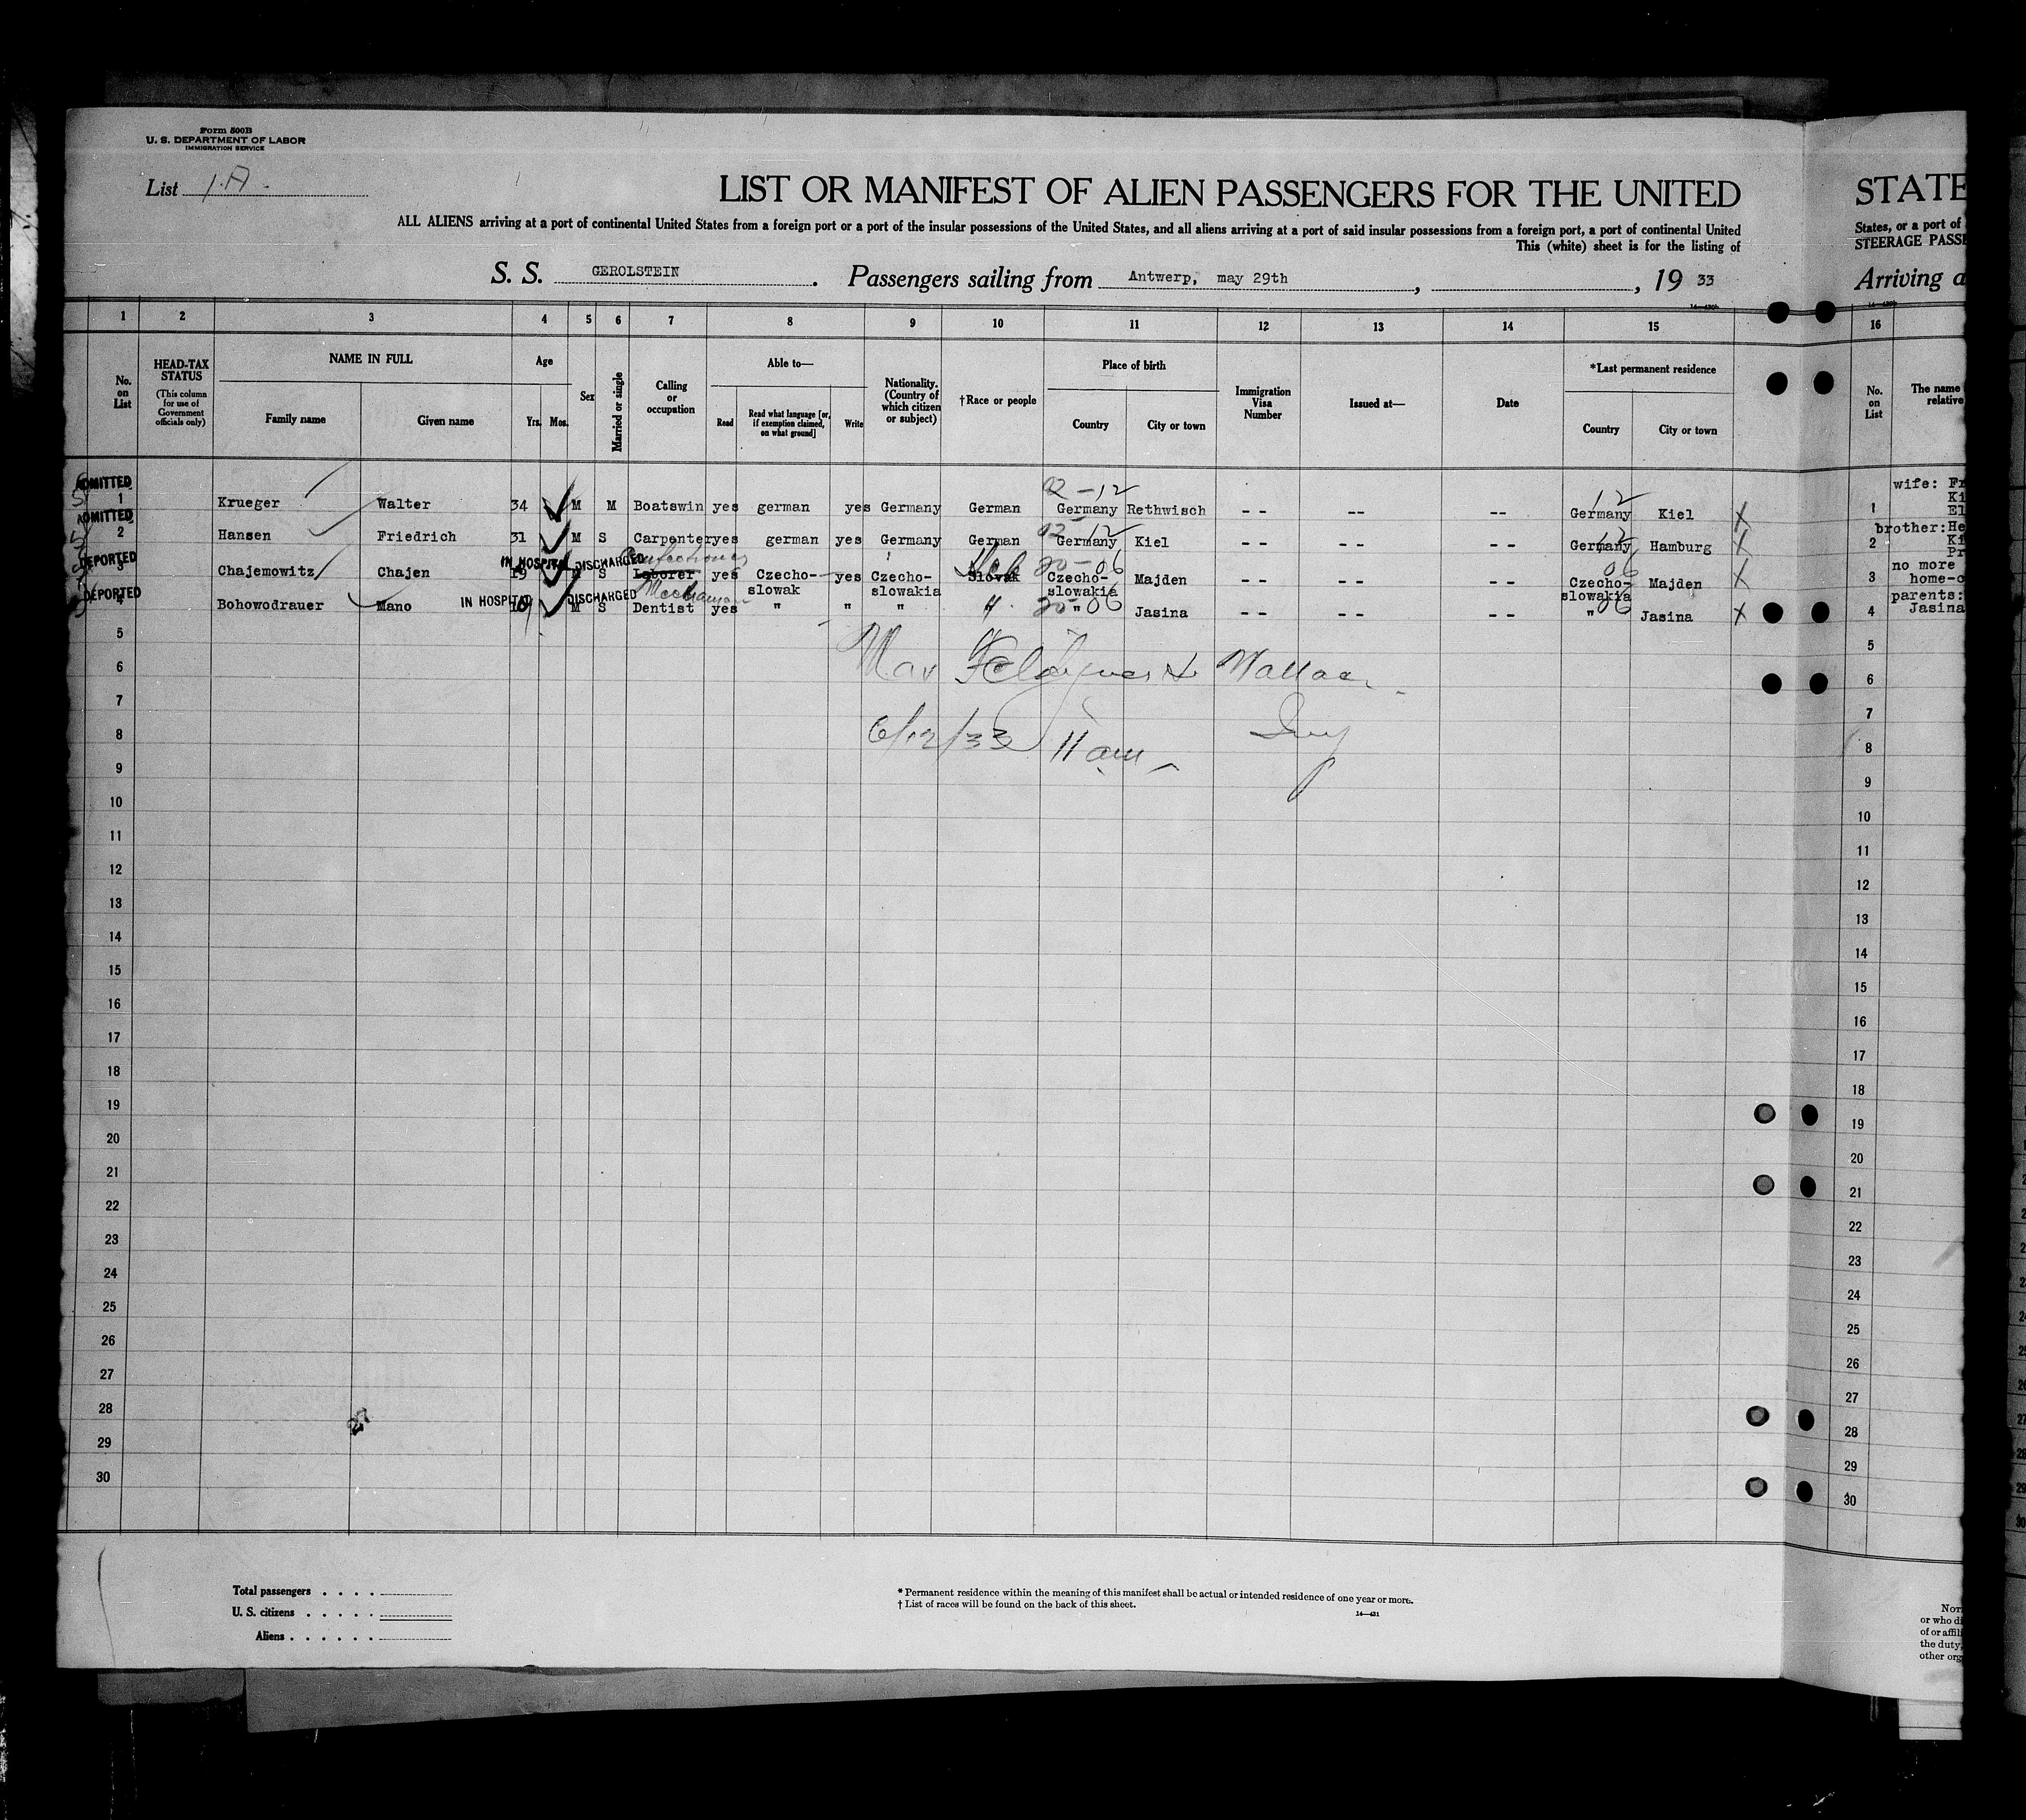 Form 500B
U. S. DEPARTMENT OF LABOR
IMMIGRATION SERVICE
List 1.A.
LIST OR MANIFEST OF ALIEN PASSENGERS FOR THE UNITED
ALL ALIENS arriving at a port of continental United States from a foreign port or a port of the insular possessions of the United States, and all aliens arriving at a port of said insular possessions from a foreign port, a port of continental United
This (white) sheet is for the listing of
S. S. GEROLSTEIN. Passengers sailing from Antwerp, may 29th, , 19 33
1 2 3 4 5 6 7 8 9 10 11 12 13 14 15
No. on List
HEAD-TAX STATUS
(This column for use of Government officials only)
NAME IN FULL
Family name Given name
Age
Yrs. Mos.
Sex
Married or single
Calling or occupation
Able to—
Read
Read what language [or, if exemption claimed, on what ground]
Write
Nationality. (Country of which citizen or subject)
†Race or people
Place of birth
Country City or town
Immigration Visa Number
Issued at—
Date
*Last permanent residence
Country City or town
ADMITTED
02-12 12
1 Krueger Walter 34 M M Boatswin yes german yes Germany German Germany Rethwisch -- -- -- Germany Kiel X
ADMITTED
02-12 12
2 Hansen Friedrich 31 M S Carpenter yes german yes Germany German Germany Kiel -- -- -- Germany Hamburg X
DEPORTED
IN HOSPITAL DISCHARGED Confectioner
Heb 20-06 06
3 Chajemowitz Chajen 19 M S Laborer yes Czecho-slowak yes Czecho-slowakia Slovak Czecho-slowakia Majden -- -- -- Czecho-slowakia Majden X
DEPORTED
IN HOSPITAL DISCHARGED
20-06 06
4 Bohowodrauer Mano 19 M S Dentist yes " " " " " Jasina -- -- -- " Jasina X
5
6
7
6/12/33 11 am
8
9
10
11
12
13
14
15
16
17
18
19
20
21
22
23
24
25
26
27
28
29
30
Total passengers . . . .
U. S. citizens . . . . .
Aliens . . . . . .
* Permanent residence within the meaning of this manifest shall be actual or intended residence of one year or more.
† List of races will be found on the back of this sheet.
14—431
STATE
States, or a port of
STEERAGE PASS
Arriving a
16
No. on List
The name
relative
1 wife: Fr
Ki
El
2 brother: He
Ki
Pr
3 no more
home-c
4 parents:
Jasina
5
6
7
8
9
10
11
12
13
14
15
16
17
18
19
20
21
22
23
24
25
26
27
28
29
30
or who di
of or affili
the duty,
other org